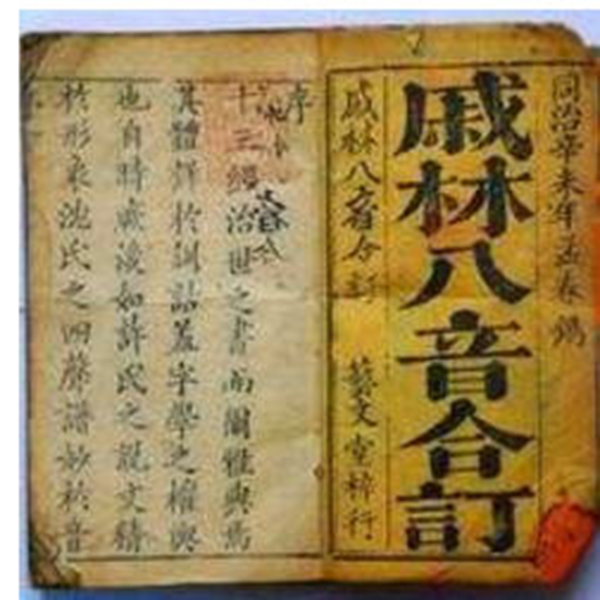 同治辛未年孟春鐫
戚林八音合訂
戚林八音合訂
藝文堂梓行
序
十三經治世之書而爾雅與焉
其體詳於訓詁蓋字學之權輿
也自時厥後如許氏之說文詳
於形聲沈氏之四聲譜妙於音